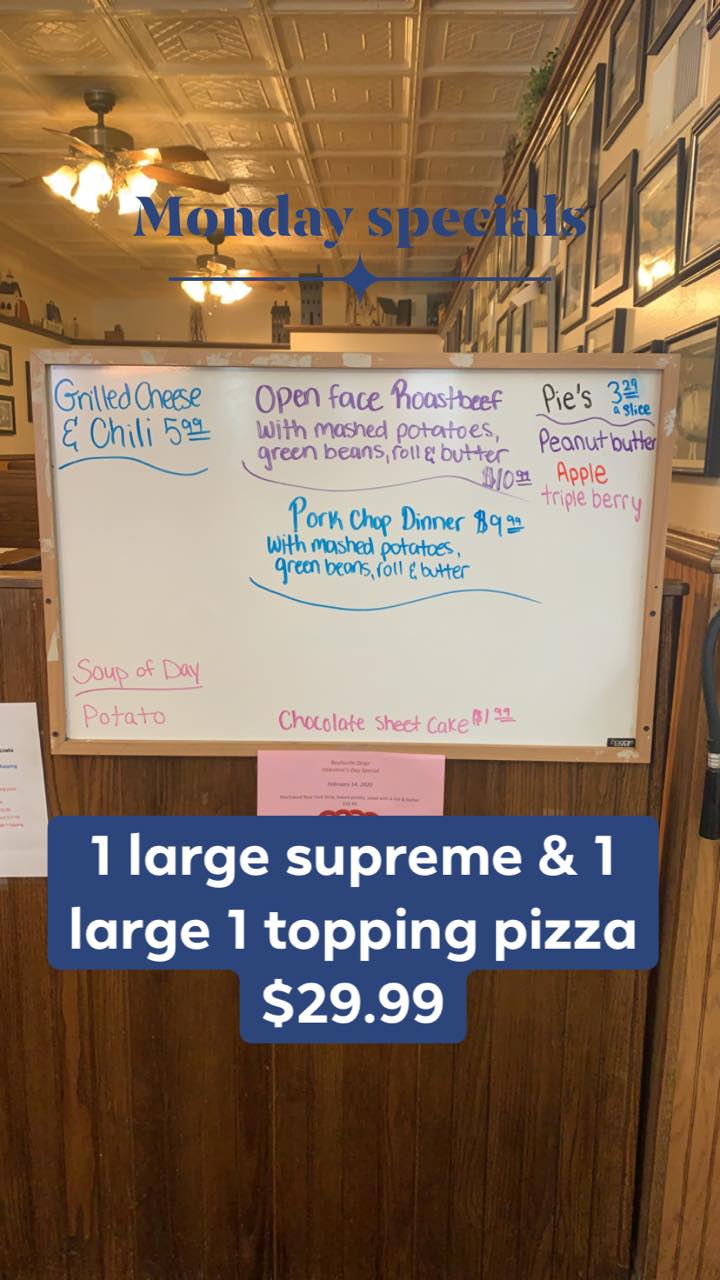 Monday specials
Grilled Cheese
& Chili 5.99
Open face Roastbeef
with mashed potatoes,
green beans, roll & butter
$10.99
Pork Chop Dinner $9.99
with mashed potatoes,
green beans, roll & butter
Pie's 3.29
a slice
Peanut butter
Apple
triple berry
Soup of Day
Potato
Chocolate Sheet Cake $1.99
Valentine's Day Special
February 14, 2020
1 large supreme & 1
large 1 topping pizza
$29.99